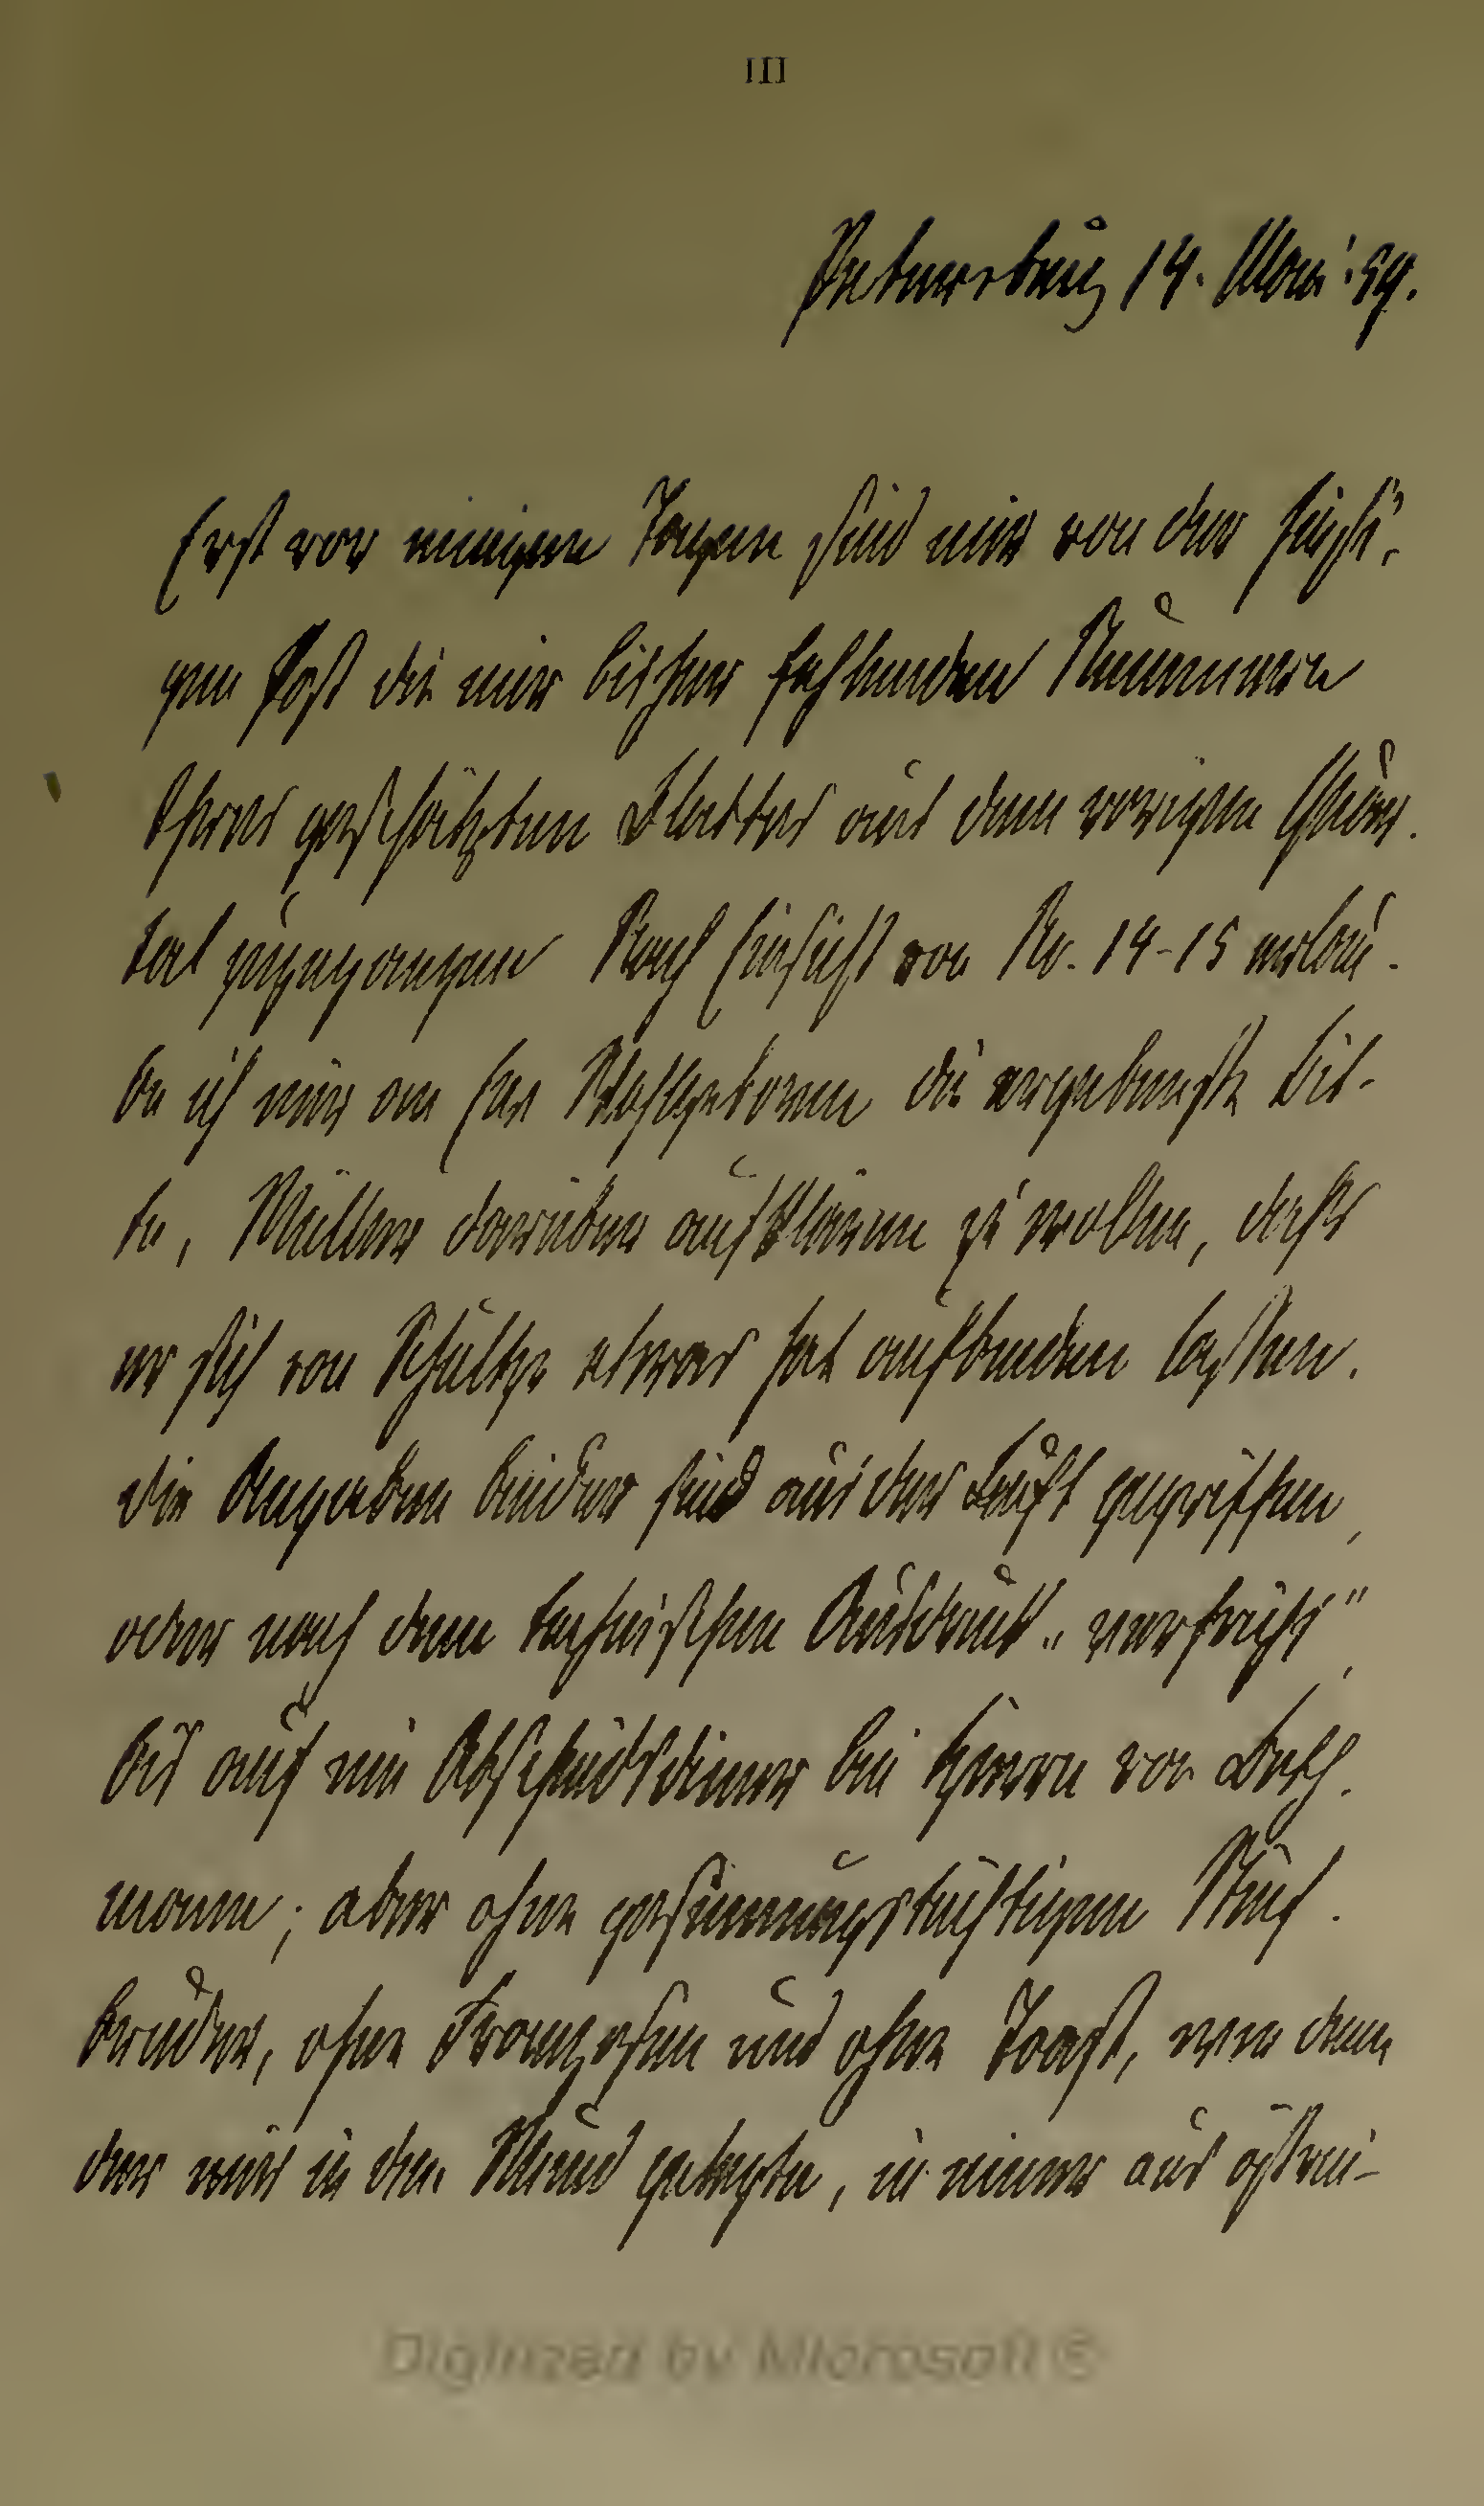 III
Petersburg 14. Mai 59.
Erst vor einigen Tagen sind mir von der hiesi-
gen Post die mir bisher fehlenden Nummern
Ihres geschätzten Blattes aus dem vorigen Quar-
tal zugegangen Nach Einsicht von No. 14-15 erlau-
be ich mir an Eure Wohlgeboren die ergebenste Bit-
te, Müller darüber aufklären zu wollen, dass
er sich von Schultze etwas hat aufbinden lassen.
die Angaben beider sind aus der Luft gegriffen,
oder nach dem technischen Ausdruck "
bis auf ein Abschiedsdiner bei Herrn von Beth-
mann; aber ohne gesinnungstüchtigen
bruder, ohne Franzosen und ohne Toast, wie denn
der mir in den Mund gelegte, in einer aus östrei-
Digitized by Microsoft ®